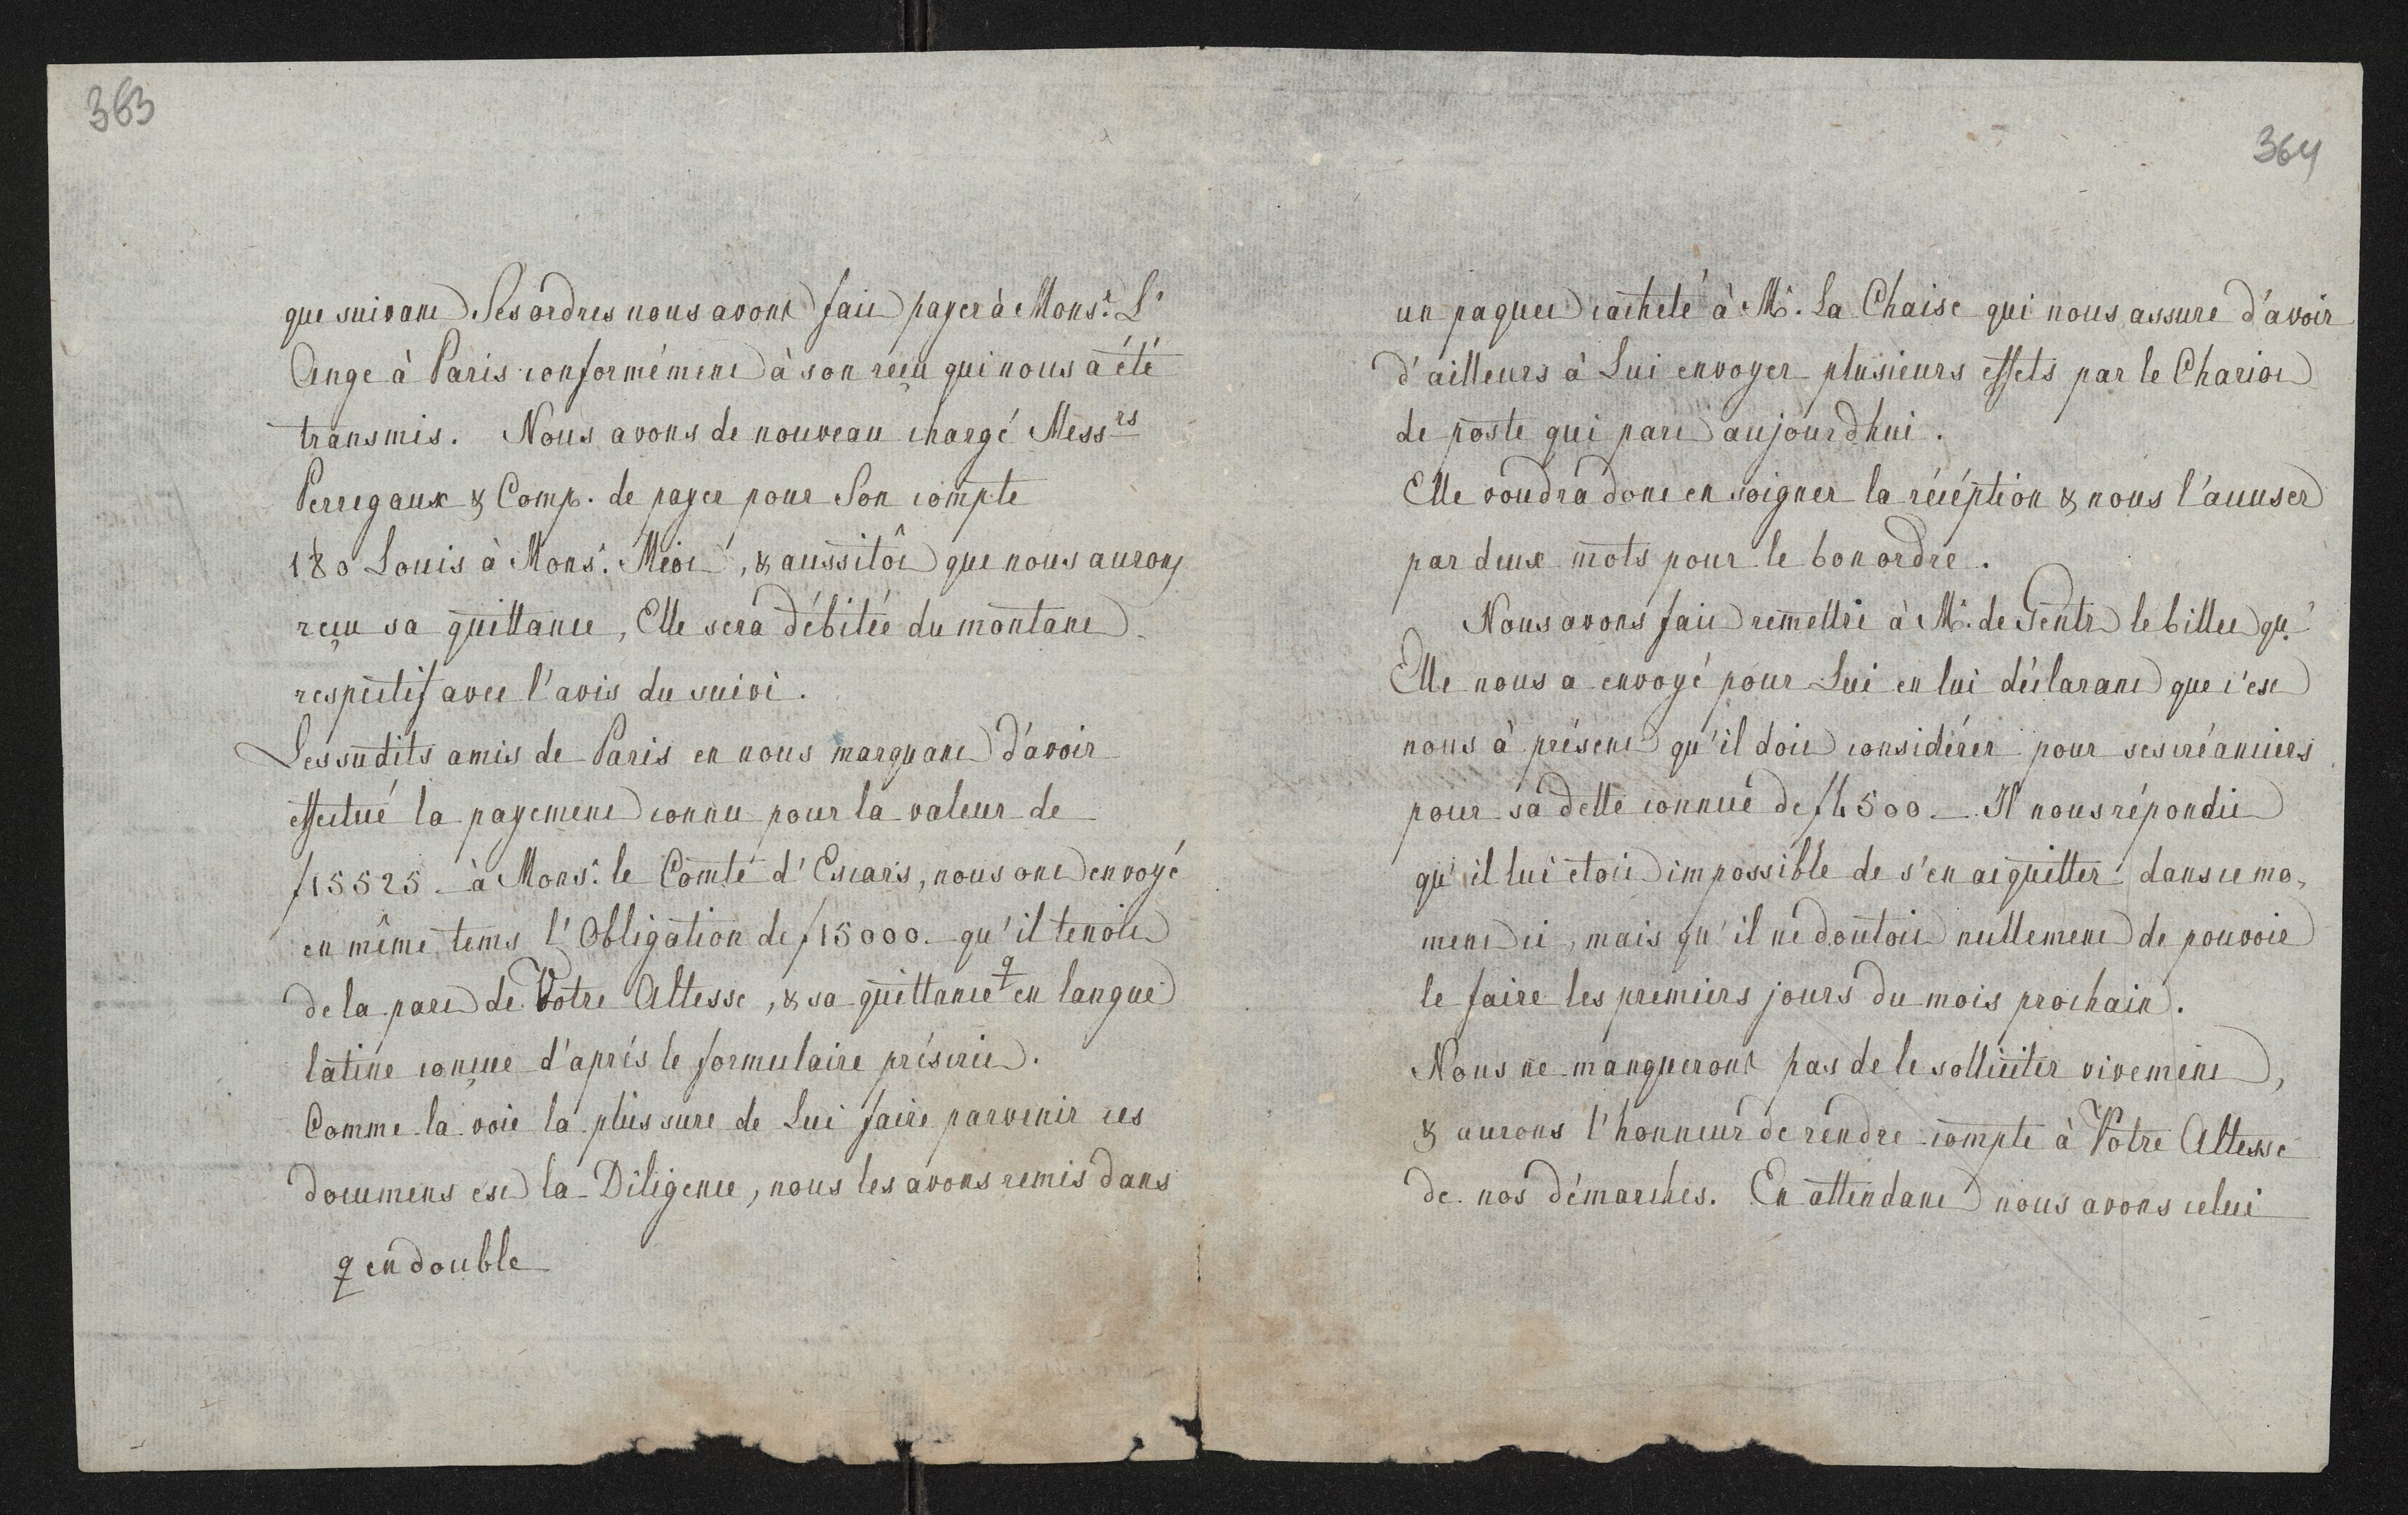 363
que suivant Ses ordres nous avons fait payer à Mons.r L'
Ange à Paris conformément à son reçu qui nous a été
transmis. Nous avons de nouveau chargé Mess.rs
Perregaux & Comp. de payer pour Son compte
180 Louis à Mons.r Méot, & aussitôt que nous aurons
reçu sa quittance, Elle sera débitée du montant
respectif avec l'avis du suivi.
Les sudits amis de Paris en nous marquant d'avoir
effectué la payement connu pour la valeur de
f15525 - à Mons.r le Comte d'Escars, nous ont envoyé
en même tems l'Obligation de f15000.- qu'il tenoit
de la part de Votre Altesse, & sa quittance ꝗ en langue
latine conçue d'aprés le formulaire préscrit.
Comme la voie la plus sure de Lui faire parvenir ces
documens est la Diligence, nous les avons remis dans
ꝗ en double
364
un paquet cacheté à M.r La Chaise qui nous assure d'avoir
d'ailleurs à Lui envoyer plusieurs effets par le Chariot
de poste qui part aujourdhui.
Elle voudra donc en soigner la récéption & nous l'accuser
par deux mots pour le bon ordre.
Nous avons fait remettre à M.r de Gentz le billet qu'
Elle nous a envoyé pour Lui en lui déclarant que c'est
nous à présent qu'il doit considérer pour ses créanciers
pour sa dette connue de f4500.- Il nous répondit
qu'il lui étoit impossible de s'en acquitter dans ce mo-
ment ci, mais qu'il ne doutoit nullement de pouvoir
le faire les premiers jours du mois prochain.
Nous ne manquerons pas de le solliciter vivement,
& aurons l'honneur de rendre compte à Votre Altesse
de nos démarches. En attendant nous avons celui